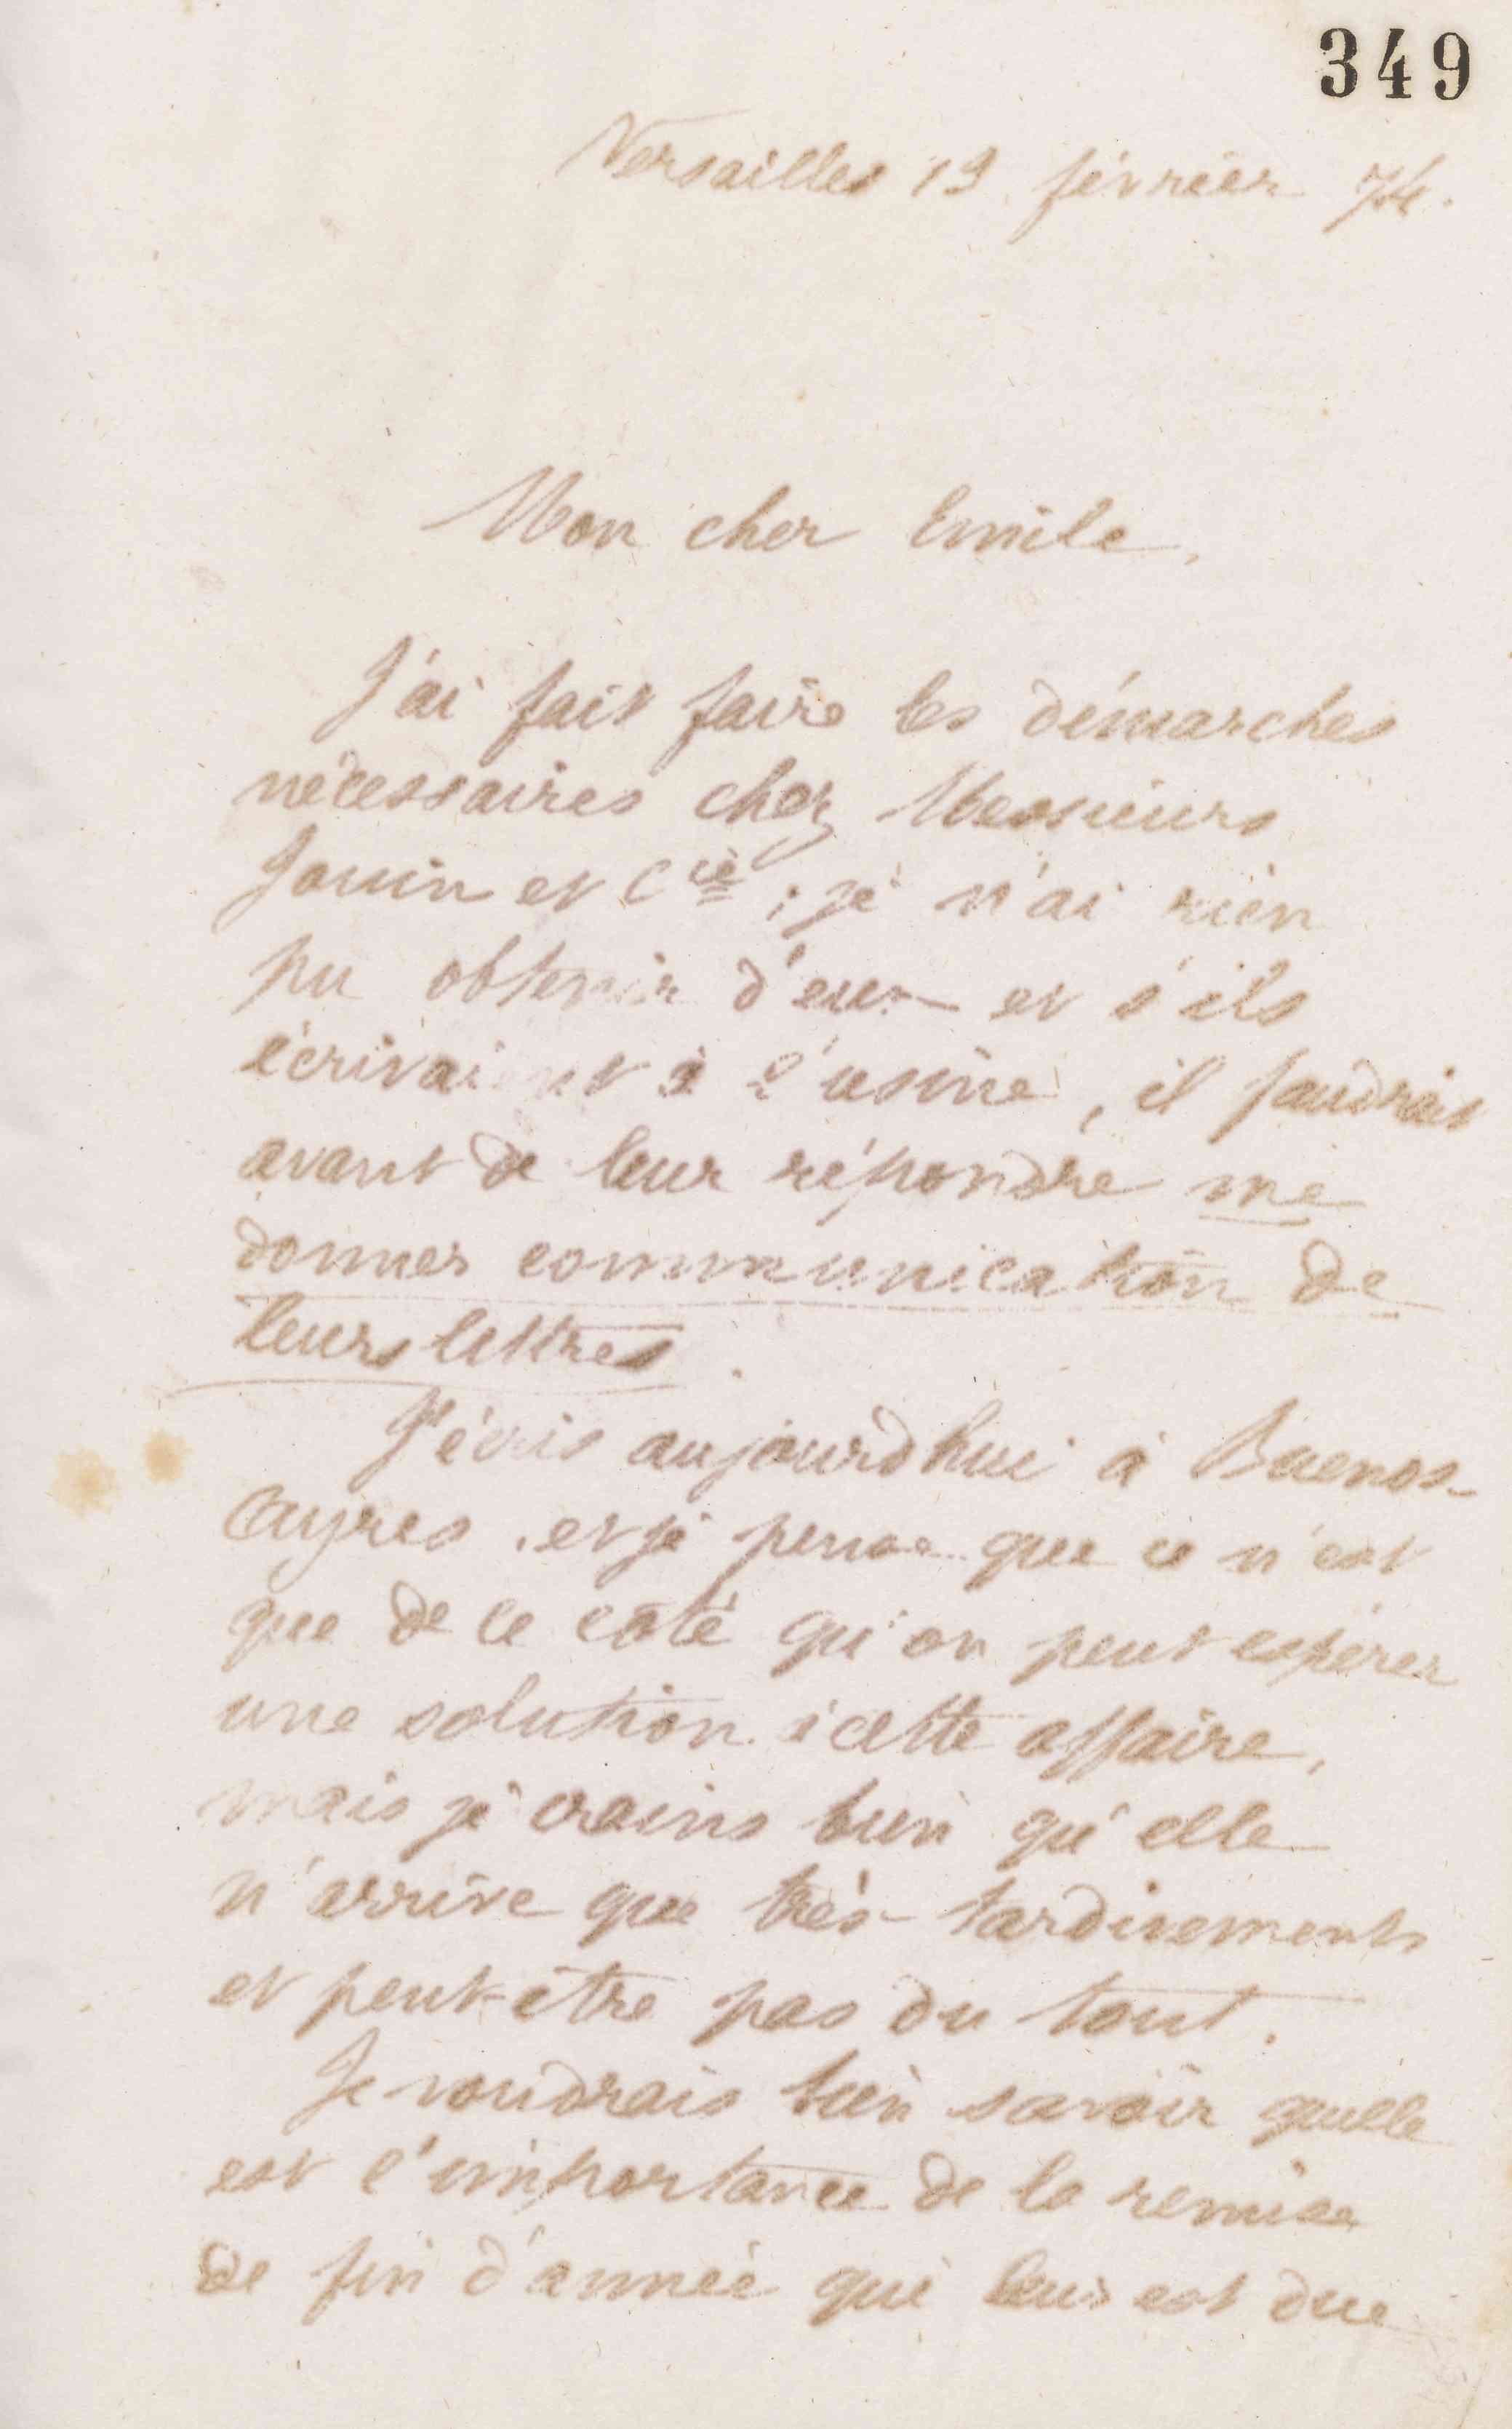 349
Versailles 19 février 74.
Mon cher Emile,
J'ai fait faire les démarches
nécessaires chez Messieurs
Jouin et Cie ; je n'ai rien
pu obtenir d'eux et s'ils
écrivaient à l'usine, il faudrait
avant de leur répondre me
donner communication de
leurs lettres.
J'écris aujourdhui à Buenos-
Ayres, et je pense que ce n'est
que de ce côté qu'on peut espérer
une solution à cette affaire,
mais je crains bien qu'elle
n'arrive que très tardivement
et peut-être pas du tout.
Je voudrais bien savoir quelle
est l'importance de la remise
de fin d'année qui leur est due